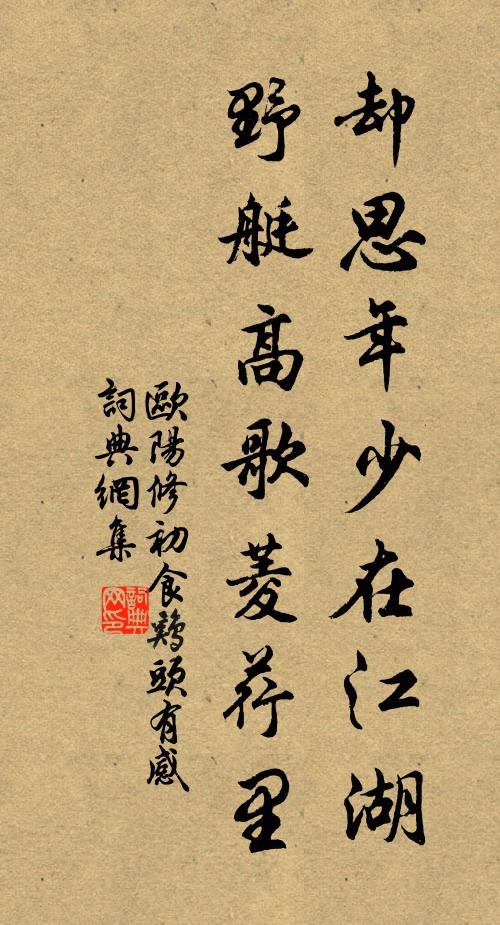 却思年少在江湖
野艇高歌菱荇里
歐陽修初食鷄頭有感
詞典網集
詞典网印